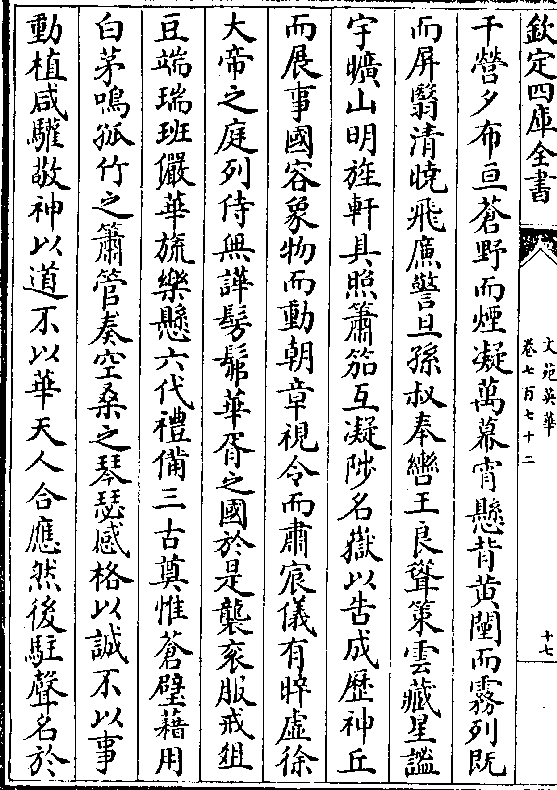 欽定四庫全書
文苑英華
卷七百七十二
十七
千營夕布亘蒼野而煙凝萬幕宵懸背黄闉而霧列既
而屏翳清曉飛廉警旦孫叔奉轡王良聳策雲藏星謐
宇曠山明旌軒具照簫笳互凝陟名嶽以告成歷神丘
而展事國容象物而動朝章視令而肅宸儀有睟虚徐
大帝之庭列侍無譁髣髴華胥之國於是襲衮服戒俎
豆端瑞班儼華旒樂懸六代禮備三古奠惟蒼璧藉用
白茅鳴孤竹之簫管奏空桑之琴瑟感格以誠不以事
動植咸驩敬神以道不以華天人合應然後駐聲名於